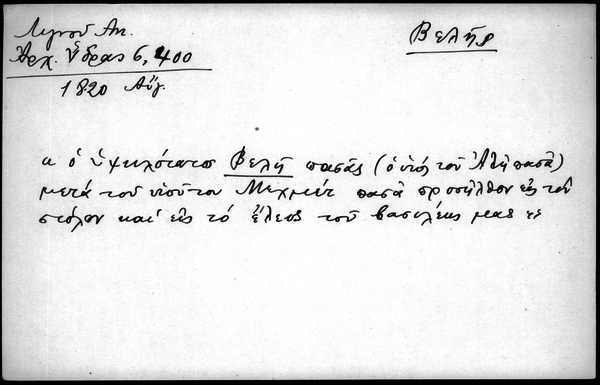 Λιγνοῦ Ἀν.
Ἀρχ. Ὕδρας 6, 400
1820 Αὔγ.
Βελῆς
α ὁ ὑψηλότατος Βελῆ πασᾶς (ὁ υἱός τοῦ Ἀλῆ πασᾶ)
μετά τοῦ υἱοῦ του Μεχμέτ πασᾶ προσῆλθον εἰς τόν
στόλον καί εἰς τό ἔλεος τοῦ βασιλέως μας